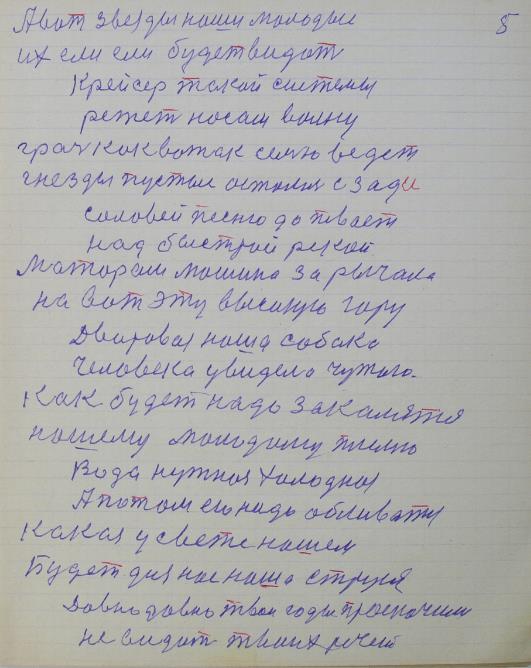 5
А вот звезды нашы молодые
их ели ели будет видот
Крейсер такой системы
режет носам волну
грач как вотак семю ведет
гнезды пустые осталися с зади
соловей песню допевает
над быстрой рекой
Матарам машина зарычала
на вот эту высокую гору
Дваровая наша собака
Человека увидела чужого.
Как будет надо закалятся
нашему молодому племю
Вода нужная холодная
А потом его надо обливати
Какая у свете нашем
Будет для нас наша струя
Давно давно твои годы проскочили
не видат твоих речей